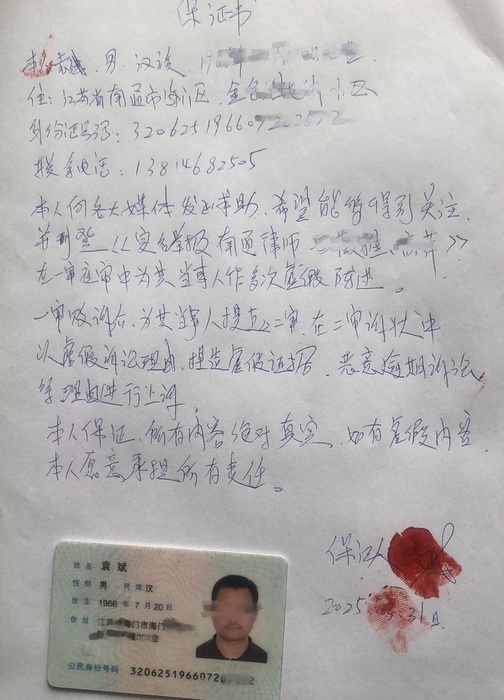 保证书
男、汉族、
住：江苏省南通市海门区、金
身份证号码：320625196607
联系电话：13814682505
本人向各大媒体发出求助、希望能够得到关注、
并刊登《实名举报南通律师 》
在一审庭审中为其当事人作多次虚假陈述。
一审败诉后、为其当事人提起二审、在二审诉状中
以虚假诉讼理由、捏造虚假证据、恶意拖延诉讼
等理由进行上诉
本人保证、所有内容绝对真实、如有虚假内容
本人愿意承担所有责任。
保证人
2025 31日
姓名 袁斌
性别 男 民族 汉
出生 1966 年 7 月 20 日
住址 江苏省海门市海门
室
公民身份号码 32062519660720